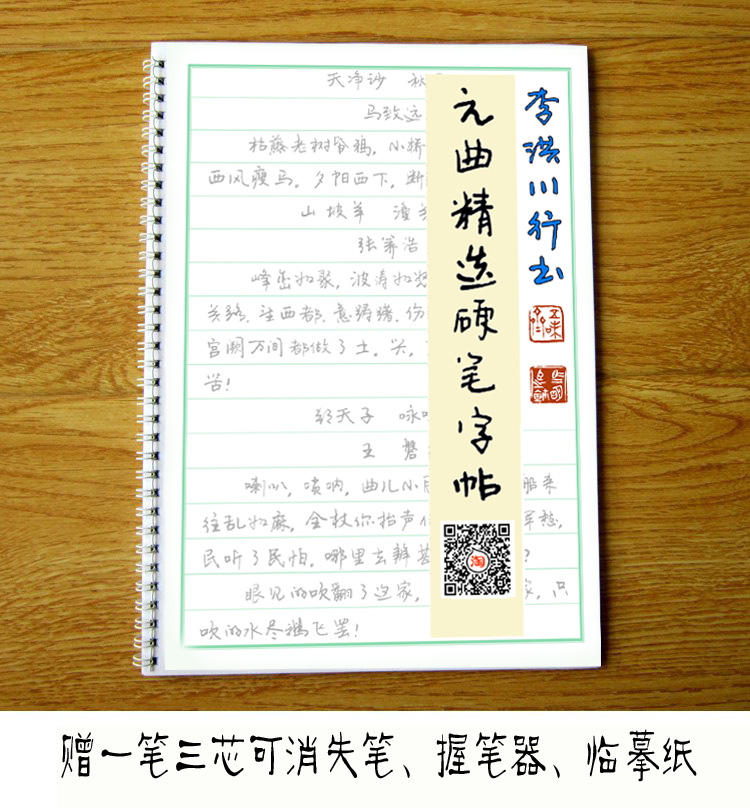 天净沙 秋
马致远
枯藤老树昏鸦,小桥
西风瘦马。夕阳西下,断
山坡羊 潼关
张养浩
峰峦如聚,波涛如怒
关路。望西都,意踌躇。伤
宫阙万间都做了土。兴,
苦!
朝天子 咏
王 磐
喇叭,唢呐,曲儿小 船来
往乱如麻,全仗你抬声 军愁,
民听了民怕。哪里去辨甚 ?
眼见的吹翻了这家, 家,只
吹的水尽鹅飞罢!
元曲精选硬笔字帖
李洪川行书
淘
赠一笔三芯可消失笔、握笔器、临摹纸